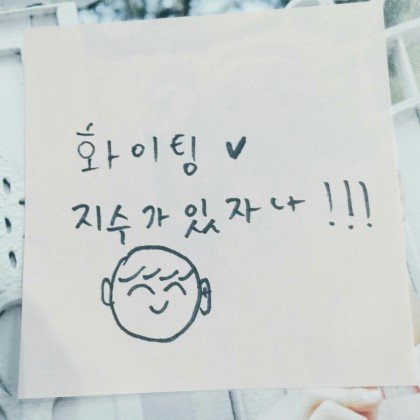 화이팅 ♥
지수가있자나!!!